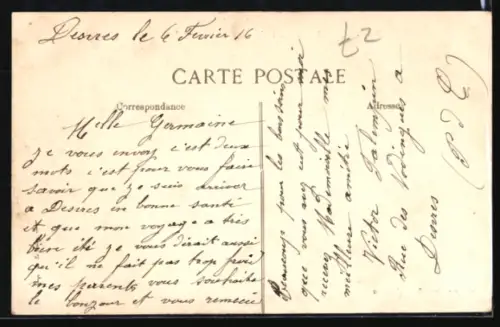 Desvres le 6 Fevrier 16
£2
CARTE POSTALE
Correspondance
Adresse
Melle Germaine
Je vous envoy c'est deux
mots c'est pour vous faire
savoir que je suis arriver
a Desvres en bonne santé
et que mon voyage a très
bien été je vous dirait aussi
qu'il ne fait pas trop froid
mes parents vous souhaite
le bonjour et vous remercie
Beaucoup pour les
que vous avez eut pour moi
recevez Mademoiselle mes
meilleure amitié
Victor
Rue des a
Desvres
(P d C)